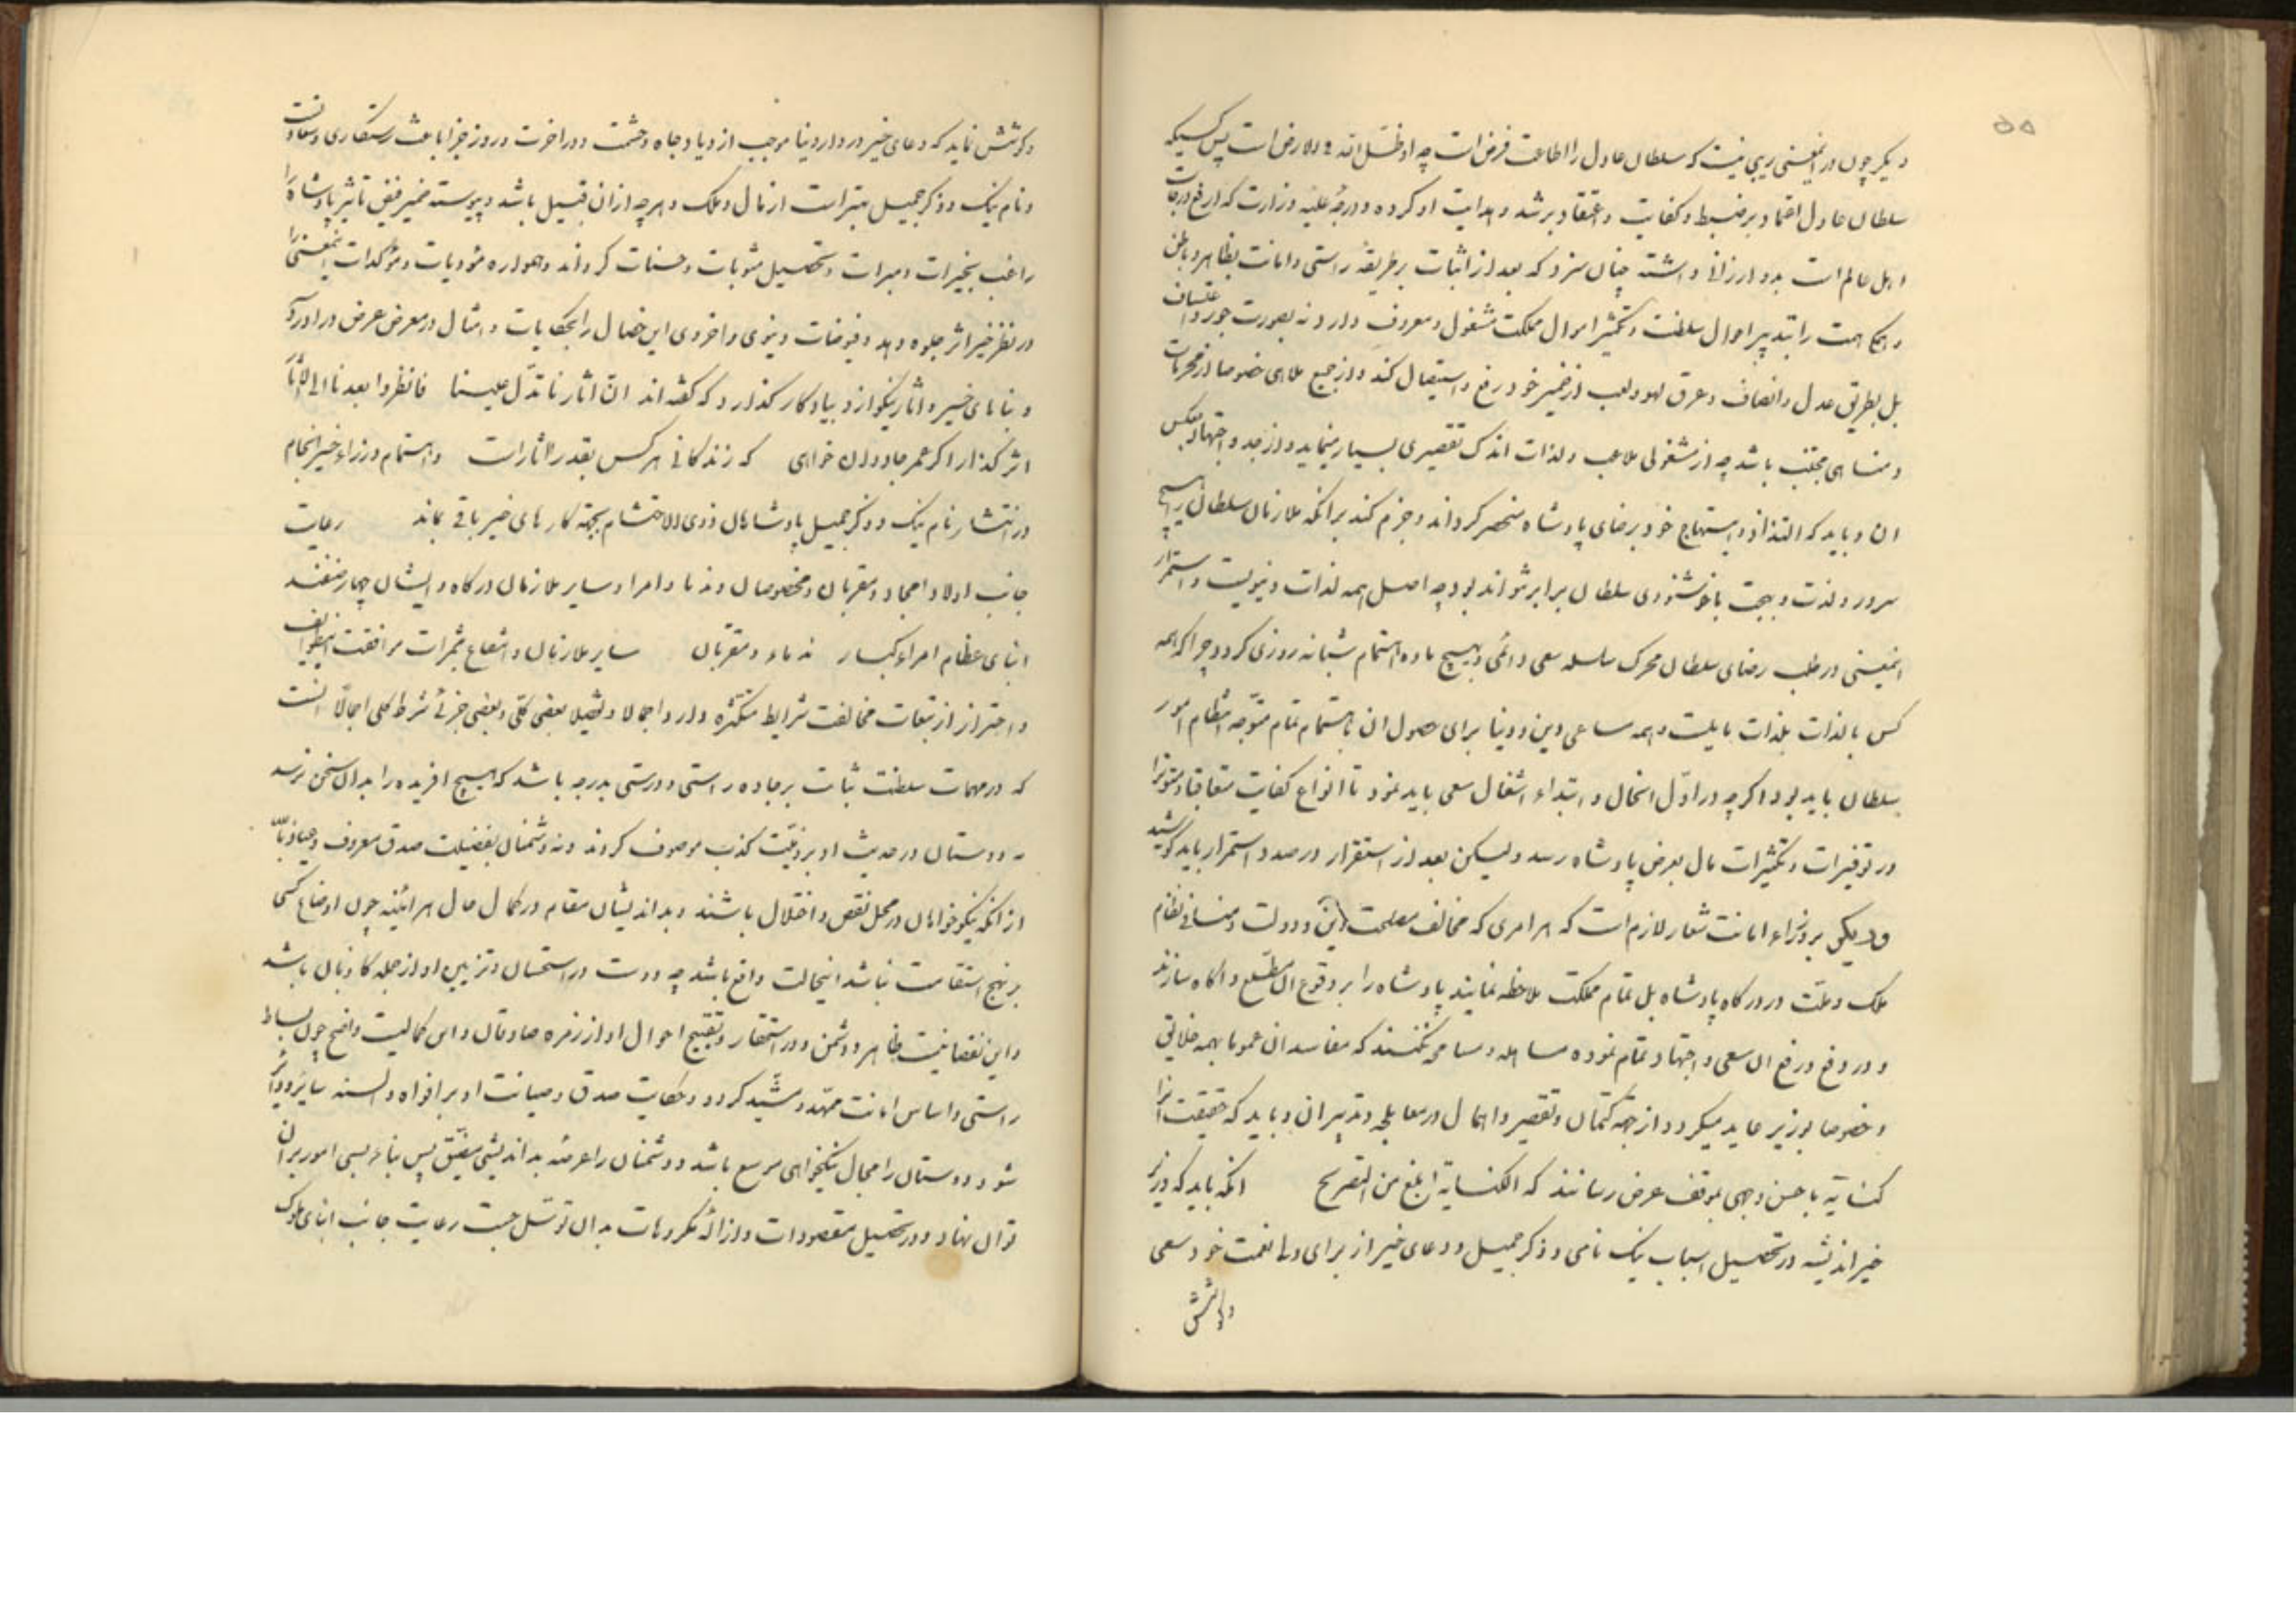 ۵۵
دیکر چون در اینمعنی ریبی نیست که سلطان عادل را اطاعت فرض است چه او ظل الله فی الارض است پس کسیکه
سلطان عادل اعتماد بر ضبط و کفایت و اعتقاد بر رشد و هدایت او کرده و درجهٔ علیّه وزارت که ارفع درجات
اهل عالم است بدو ارزانی داشته چنان سزد که بعد از اثبات بر طریقهٔ راستی و امانت بظاهر و باطن
همت را بتدبیر احوال سلطنت و تکثیر اموال مملکت مشغول و معروف دارد نه بصورت جور و اعتساف
بل بطریق عدل و انصاف و عرق لهو و لعب از ضمیر خود رفع و استیصال کند و از جمیع ملاهی خصوصا از محرمات
و مناهی مجتنب باشد چه از مشغولی ملاعب و لذات اندک تقصیری بسیار مینماید و از جد و اجتهاد بعکس
ان و باید که التذاذ و استبهاج خود برضای پادشاه منحصر کرداند و جزم کند برانکه ملازمان سلطان را هیچ
سرور و لذت و بهجت با خوشنودی سلطان برابر نتواند بود چه اصل همه لذات دنیویست و استمرار
اینمعنی در طلب رضای سلطان محرک سلسله سعی دائمی و مهیج ماده اهتمام شبانه روزی کردد چرا که همه
کس بالذات بلذات مایلست و همه مساعی دین و دنیا برای حصول ان باهتمام تمام متوجه انتظام امور
سلطان باید بود اکرچه در اوّل اشغال و ابتداء اشغال سعی باید نمود تا انواع کفایت متعاقبا و متواترا
در توفیرات و تکثیرات مال بعرض پادشاه رسد ولیکن بعد از استقرار در صدد استمرار باید کوشید
دیکر بر وزراء امانت شعار لازم است که هر امری که مخالف مصلحت دین و دولت و منافی نظام
ملک و ملّت در درکاه پادشاه بل تمام مملکت ملاحظه نمایند پادشاه را بر وقوع ان مطّلع و اکاه سازند
و در دفع و رفع ان سعی و اجتهاد تمام نموده مساهله و مسامحه نکنند که مفاسد ان عموما بهمه خلایق
و خصوصا بوزیر عاید میکردد از جهة کتمان و تقصیر و اهمال در معالجه و تدبیر ان و باید که حقیقت انرا
کنایةً باحسن وجهی بموقف عرض رسانند که الکنایة ابلغ من التصریح انکه باید که وزیر
خیراندیش در تحصیل اسباب نیک نامی و ذکر جمیل و دعای خیر از برای ولی نعمت خود سعی
و کوشش نماید که دعای خیر در دار دنیا موجب ازدیاد جاه و حشمت و در اخرت و روز جزا باعث رستکاری و سعادتست
و نام نیک و ذکر جمیل بهتر است از مال و ملک و هرچه از ان قبیل باشد و پیوسته ضمیر فیض تاثیر پادشاه را
راغب بخیرات و مبرات و تحصیل مثوبات و حسنات کرداند و همواره مؤدیات و مؤکدات اینمعنی را
در نظر خیر اثر جلوه دهد و فیوضات دنیوی و اخروی این خصال را بحکایات و امثال در معرض عرض در اورد
و بناهای خیر و اثار نیکو از او بیادکار کذارد که کفته اند انّ اثارنا تدلّ علینا فانظروا بعدنا الی الاثار
اثر کذار اکر عمر جاودان خواهی که زندکانی هر کس بقدر اثار است و اهتمام وزراء خیر انجام
در انتشار نام نیک و ذکر جمیل پادشاهان ذوی الاحتشام بجهة کارهای خیر باقی بماند رعایت
جانب اولاد امجاد و مقربان و مخصوصان و ندما و امرا و سایر ملازمان درکاه و ایشان چهار صنفند
ابنای عظام امراء کبار ندماء و مقربان سایر ملازمان و انتفاع بثمرات موافقت اینطوایف
و احتراز از تبعات مخالفت شرایط متکثره دارد اجمالا و تفصیلا بعضی کلّی و بعضی جزئی شرط کلی اجمالا انست
که در مهمات سلطنت ثبات بر جاده راستی و درستی بدرجه باشد که هیچ افریده را بدان سخن نرسد
نه دوستان در حدیث او برذیلت کذب موصوف کردند و نه دشمنان بفضیلت صدق معروف و عیاذ بالله
از انکه نیکوخواهان در محل نقص و اختلال باشند و بداندیشان مقام در کمال حال هر ائینه چون اوضاع کسی
بر نهج استقامت نباشد اینحالت واقع باشد چه دوست در استحسان و تزیین او از جمله کاذبان باشد
و این نقصانیست ظاهر و دشمن در استحقار و تقبیح احوال او از زمره صادقان و این کمالیست واضح چون بساط
راستی و اساس امانت ممهّد و مشیّد کردد و حکایت صدق و صیانت او بر افواه و السنه سایر و دایر
شود دوستان را مجال نیکخواهی موسع باشد و دشمنان را عرصه بداندیشی مضیّق پس بناء بسی امور بران
توان نهاد و در تحصیل مقصودات و ازاله مکروهات بدان توسّل جست رعایت جانب ابنای ملوک